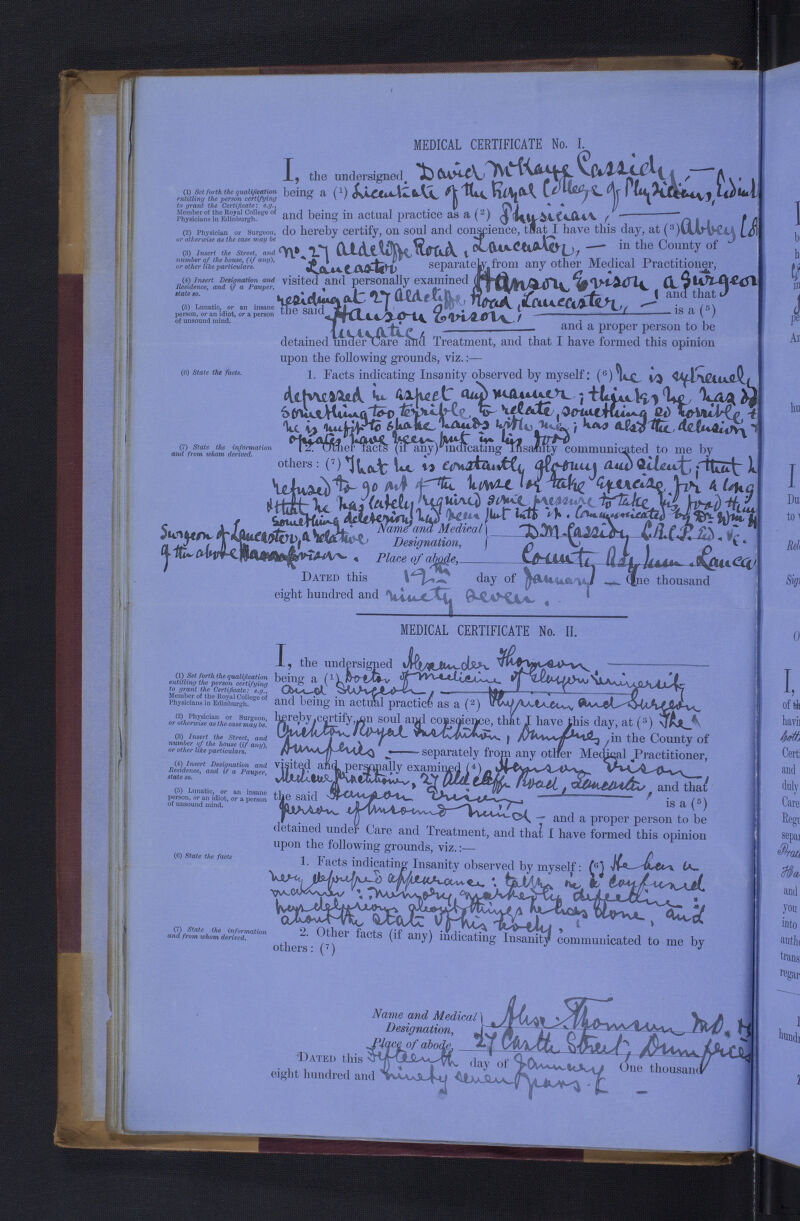 MEDICAL CERTIFICATE No. I.
I, the undersigned David McKaye Cassidy, —
(1) Set forth the qualification entitling the person certifying to grant the Certificate; e.g., Member of the Royal College of Physicians in Edinburgh.
being a (1) Licentiate of the Royal College of Physicians,
and being in actual practice as a (2) Physician, —
(2) Physician or Surgeon, or otherwise as the case may be
do hereby certify, on soul and conscience, that I have this day, at (3)
(3) Insert the Street, and number of the house, (if any), or other like particulars.
No. 27 Aldcliffe Road, Lancaster, — in the County of
Lancaster separately from any other Medical Practitioner,
(4) Insert Designation and Residence, and if a Pauper, state so.
visited and personally examined Hanson Evison, a Surgeon
residing at 27 Aldcliffe Road, Lancaster, — and that
(5) Lunatic, or an insane person, or an idiot, or a person of unsound mind.
the said Hanson Evison, — is a (5)
lunatic, — and a proper person to be
detained under Care and Treatment, and that I have formed this opinion
upon the following grounds, viz.:—
(6) State the facts.
1. Facts indicating Insanity observed by myself: (6) he is extremely
depressed in aspect and manner; thinks he has
something too terrible to relate, something so horrible
he is unfit to shake hands with men; has also the delusion
opiates have been put in his food
(7) State the information and from whom derived.
2. Other facts (if any) indicating Insanity communicated to me by
others: (7) That he is constantly gloomy and silent; that
refused to go out of the house or take exercise for a long
& that he has lately required some pressure to take his food
something deleterious had been put into it. Communicated by Dr
Surgeon of Lancaster, a relative
of the above
Name and Medical Designation, D.M. Cassidy L.R.C.P. Ed.
Place of abode, County Asylum Lancaster
DATED this 19th day of January — One thousand
eight hundred and ninety seven.
MEDICAL CERTIFICATE No. II.
I, the undersigned Alexander Thomson, —
(1) Set forth the qualification entitling the person certifying to grant the Certificate; e.g., Member of the Royal College of Physicians in Edinburgh.
being a (1) Doctor of Medicine of Glasgow University
and Surgeon, —
and being in actual practice as a (2) Physician and Surgeon
(2) Physician or Surgeon, or otherwise as the case may be.
hereby certify, on soul and conscience, that I have this day, at (3) The
(3) Insert the Street, and number of the house (if any), or other like particulars.
Crichton Royal Institution, Dumfries, in the County of
Dumfries, — separately from any other Medical Practitioner,
(4) Insert Designation and Residence, and if a Pauper, state so.
visited and personally examined (4) Hanson Evison,
Medical Practitioner, 27 Aldcliffe Road, Lancaster, and that
(5) Lunatic, or an insane person, or an idiot, or a person of unsound mind.
the said Hanson Evison, — is a (5)
person of unsound mind — and a proper person to be
detained under Care and Treatment, and that I have formed this opinion
upon the following grounds, viz.:—
(6) State the facts
1. Facts indicating Insanity observed by myself: (6) He has a
very depressed appearance: talks in a confused
manner: memory markedly defective:
has delusions about things he has done, and
about the state of his body.
(7) State the information and from whom derived.
2. Other facts (if any) indicating Insanity communicated to me by
others: (7)
Name and Medical Designation, Alex. Thomson M.D.
Place of abode, 27 Castle Street, Dumfries
DATED this Fifteenth day of January One thousand
eight hundred and ninety seven years.